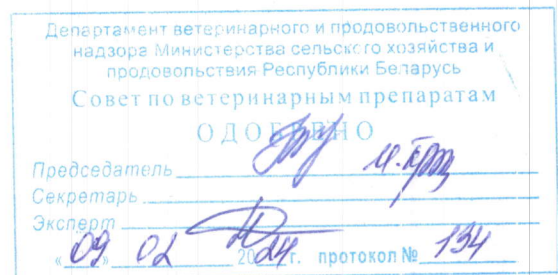 Департамент ветеринарного и продовольственного
надзора Министерства сельского хозяйства и
продовольствия Республики Беларусь
Совет по ветеринарным препаратам
ОДОБРЕНО
Председатель
Секретарь
Эксперт
«09» 02 2024г. протокол № 134